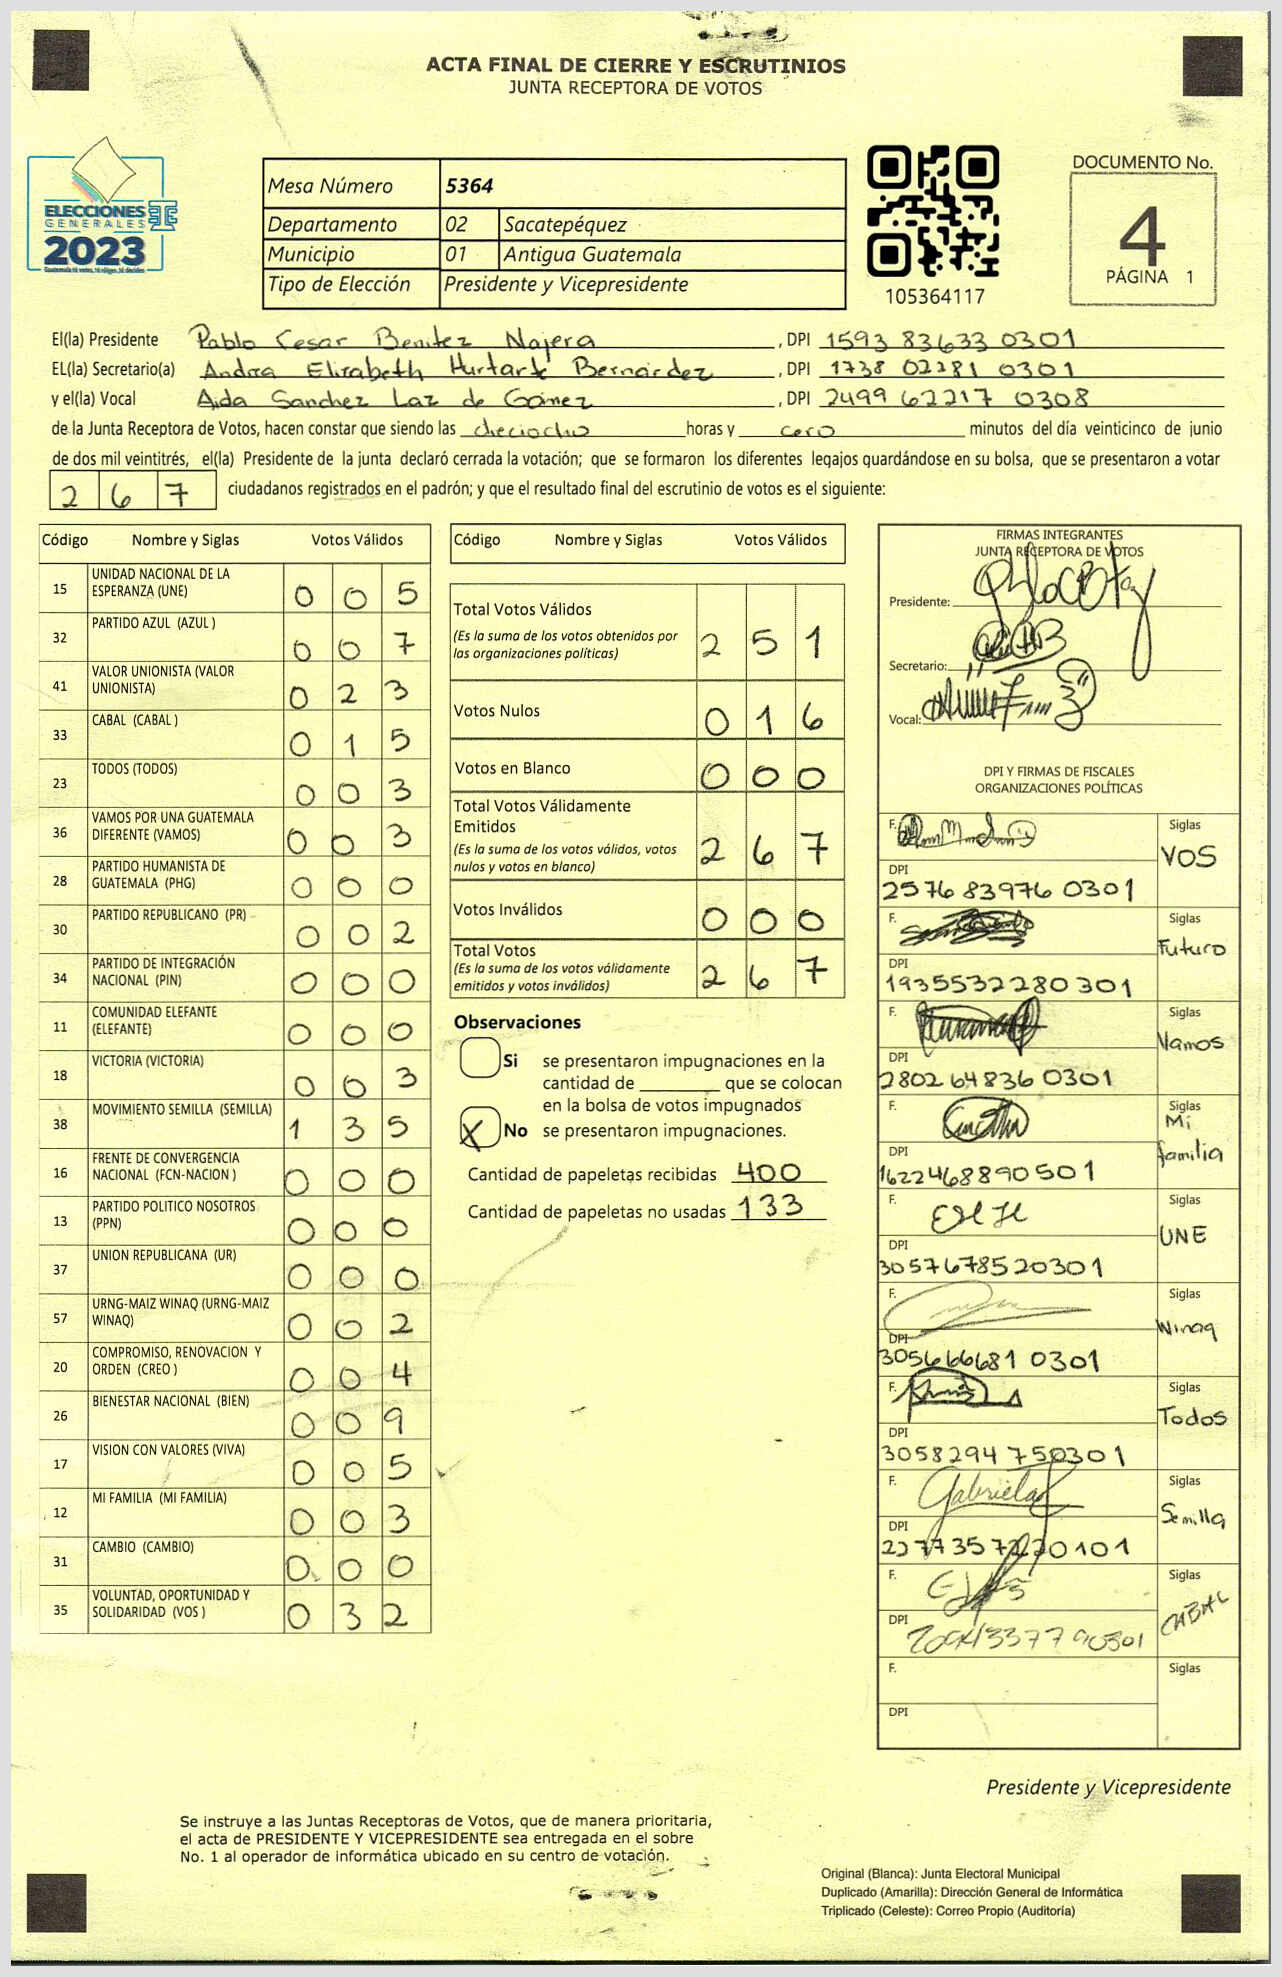 ACTA FINAL DE CIERRE Y ESCRUTINIOS
JUNTA RECEPTORA DE VOTOS
ELECCIONES
GENERALES
2023
Mesa Número 5364
Departamento 02 Sacatepéquez
Municipio 01 Antigua Guatemala
Tipo de Elección Presidente y Vicepresidente
105364117
DOCUMENTO No.
4
PÁGINA 1
El(la) Presidente Pablo Cesar Benitez Najera, DPI 1593 83633 0301
EL(la) Secretario(a) Andrea Elizabeth Hurtarte Bernardez, DPI 1738 02281 0301
y el(la) Vocal Aida Sanchez Laz de Gómez, DPI 2499 62217 0308
de la Junta Receptora de Votos, hacen constar que siendo las dieciocho horas y cero minutos del día veinticinco de junio
de dos mil veintitrés, el(la) Presidente de la junta declaró cerrada la votación; que se formaron los diferentes legajos guardándose en su bolsa, que se presentaron a votar
267 ciudadanos registrados en el padrón; y que el resultado final del escrutinio de votos es el siguiente:
Código Nombre y Siglas Votos Válidos
15 UNIDAD NACIONAL DE LA ESPERANZA (UNE) 0 0 5
32 PARTIDO AZUL (AZUL ) 0 0 7
41 VALOR UNIONISTA (VALOR UNIONISTA) 0 2 3
33 CABAL (CABAL ) 0 1 5
23 TODOS (TODOS) 0 0 3
36 VAMOS POR UNA GUATEMALA DIFERENTE (VAMOS) 0 0 3
28 PARTIDO HUMANISTA DE GUATEMALA (PHG) 0 0 0
30 PARTIDO REPUBLICANO (PR) 0 0 2
34 PARTIDO DE INTEGRACIÓN NACIONAL (PIN) 0 0 0
11 COMUNIDAD ELEFANTE (ELEFANTE) 0 0 0
18 VICTORIA (VICTORIA) 0 0 3
38 MOVIMIENTO SEMILLA (SEMILLA) 1 3 5
16 FRENTE DE CONVERGENCIA NACIONAL (FCN-NACION ) 0 0 0
13 PARTIDO POLITICO NOSOTROS (PPN) 0 0 0
37 UNION REPUBLICANA (UR) 0 0 0
57 URNG-MAIZ WINAQ (URNG-MAIZ WINAQ) 0 0 2
20 COMPROMISO, RENOVACION Y ORDEN (CREO ) 0 0 4
26 BIENESTAR NACIONAL (BIEN) 0 0 9
17 VISION CON VALORES (VIVA) 0 0 5
12 MI FAMILIA (MI FAMILIA) 0 0 3
31 CAMBIO (CAMBIO) 0 0 0
35 VOLUNTAD, OPORTUNIDAD Y SOLIDARIDAD (VOS ) 0 3 2
Código Nombre y Siglas Votos Válidos
Total Votos Válidos 2 5 1
(Es la suma de los votos obtenidos por
las organizaciones políticas)
Votos Nulos 0 1 6
Votos en Blanco 0 0 0
Total Votos Válidamente
Emitidos 2 6 7
(Es la suma de los votos válidos, votos
nulos y votos en blanco)
Votos Inválidos 0 0 0
Total Votos 2 6 7
(Es la suma de los votos válidamente
emitidos y votos inválidos)
Observaciones
Si se presentaron impugnaciones en la
cantidad de ________ que se colocan
en la bolsa de votos impugnados
X No se presentaron impugnaciones.
Cantidad de papeletas recibidas 400
Cantidad de papeletas no usadas 133
FIRMAS INTEGRANTES
JUNTA RECEPTORA DE VOTOS
Presidente:
Secretario:
Vocal:
DPI Y FIRMAS DE FISCALES
ORGANIZACIONES POLÍTICAS
F. Siglas
VOS
DPI
2576 83976 0301
F. Siglas
Futuro
DPI
1935532280301
F. Siglas
Vamos
DPI
2802 64836 0301
F. Siglas
Mi
familia
DPI
1622468890501
F. Siglas
UNE
DPI
3057678520301
F. Siglas
Winaq
DPI
305666681 0301
F. Siglas
Todos
DPI
3058294750301
F. Gabriela Siglas
Semilla
DPI
F. Siglas
CABAL
DPI
F. Siglas
DPI
Presidente y Vicepresidente
Se instruye a las Juntas Receptoras de Votos, que de manera prioritaria,
el acta de PRESIDENTE Y VICEPRESIDENTE sea entregada en el sobre
No. 1 al operador de informática ubicado en su centro de votación.
Original (Blanca): Junta Electoral Municipal
Duplicado (Amarilla): Dirección General de Informática
Triplicado (Celeste): Correo Propio (Auditoría)